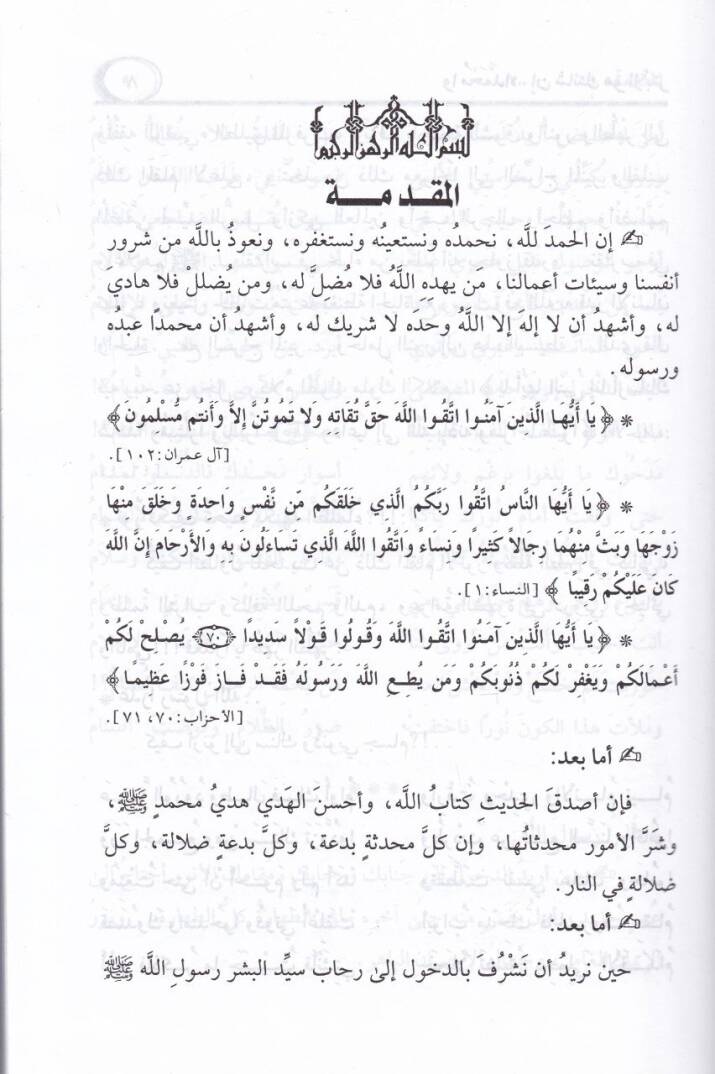 بسم الله الرحمن الرحيم
المقدمة
✍ إن الحمدَ لله، نحمدُه ونستعينُه ونستغفره، ونعوذُ بالله من شرور
أنفسنا وسيئات أعمالنا، مَن يهدِهِ اللَّهُ فلا مُضلَّ له، ومن يُضللْ فلا هاديَ
له، وأشهدُ أن لا إلهَ إلا اللَّهُ وحدَه لا شريكَ له، وأشهدُ أن محمدًا عبدُه
ورسوله.
* ﴿يَا أَيُّهَا الَّذِينَ آمَنُوا اتَّقُوا اللَّهَ حَقَّ تُقَاتِهِ وَلا تَمُوتُنَّ إِلاَّ وَأَنتُم مُّسْلِمُونَ﴾
[آل عمران: ١٠٢].
* ﴿يَا أَيُّهَا النَّاسُ اتَّقُوا رَبَّكُمُ الَّذِي خَلَقَكُم مِّن نَّفْسٍ وَاحِدَةٍ وَخَلَقَ مِنْهَا
زَوْجَهَا وَبَثَّ مِنْهُمَا رِجَالاً كَثِيرًا وَنِسَاءً وَاتَّقُوا اللَّهَ الَّذِي تَسَاءَلُونَ بِهِ وَالأَرْحَامَ إِنَّ اللَّهَ
كَانَ عَلَيْكُمْ رَقِيبًا﴾ [النساء: ١].
* ﴿يَا أَيُّهَا الَّذِينَ آمَنُوا اتَّقُوا اللَّهَ وَقُولُوا قَوْلاً سَدِيدًا ﴿٧٠﴾ يُصْلِحْ لَكُمْ
أَعْمَالَكُمْ وَيَغْفِرْ لَكُمْ ذُنُوبَكُمْ وَمَن يُطِعِ اللَّهَ وَرَسُولَهُ فَقَدْ فَازَ فَوْزًا عَظِيمًا﴾
[الأحزاب: ٧٠، ٧١].
✍ أما بعد:
فإن أصدقَ الحديثِ كتابُ الله، وأحسنَ الهَدي هديُ محمدٍ ﷺ،
وشَرَّ الأمور محدثاتُها، وإن كلَّ محدثةٍ بدعة، وكلَّ بدعةٍ ضلالة، وكلَّ
ضلالةٍ في النار.
✍ أما بعد:
حين نريدُ أن نَشْرُفَ بالدخول إلىٰ رحاب سيِّد البشر رسولِ اللَّه ﷺ